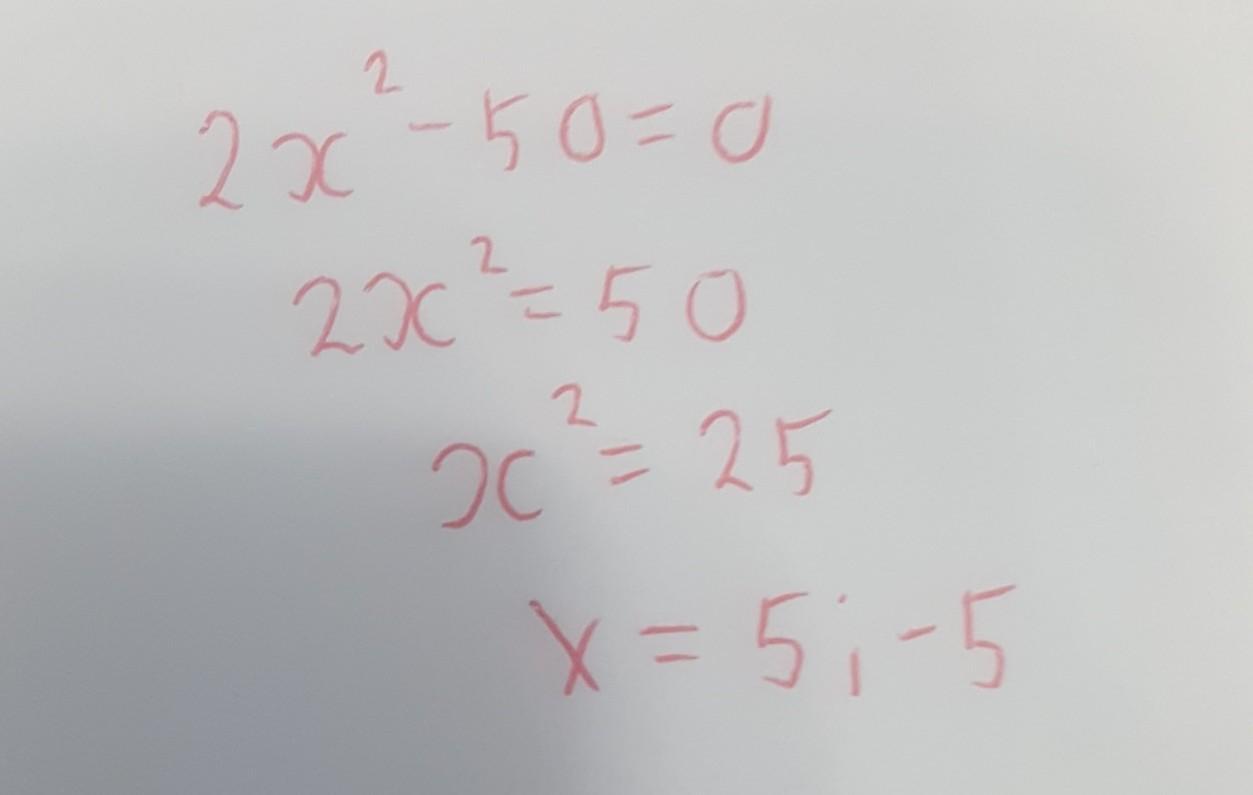 2x² - 50 = 0
2x² = 50
x² = 25
x = 5 ; -5